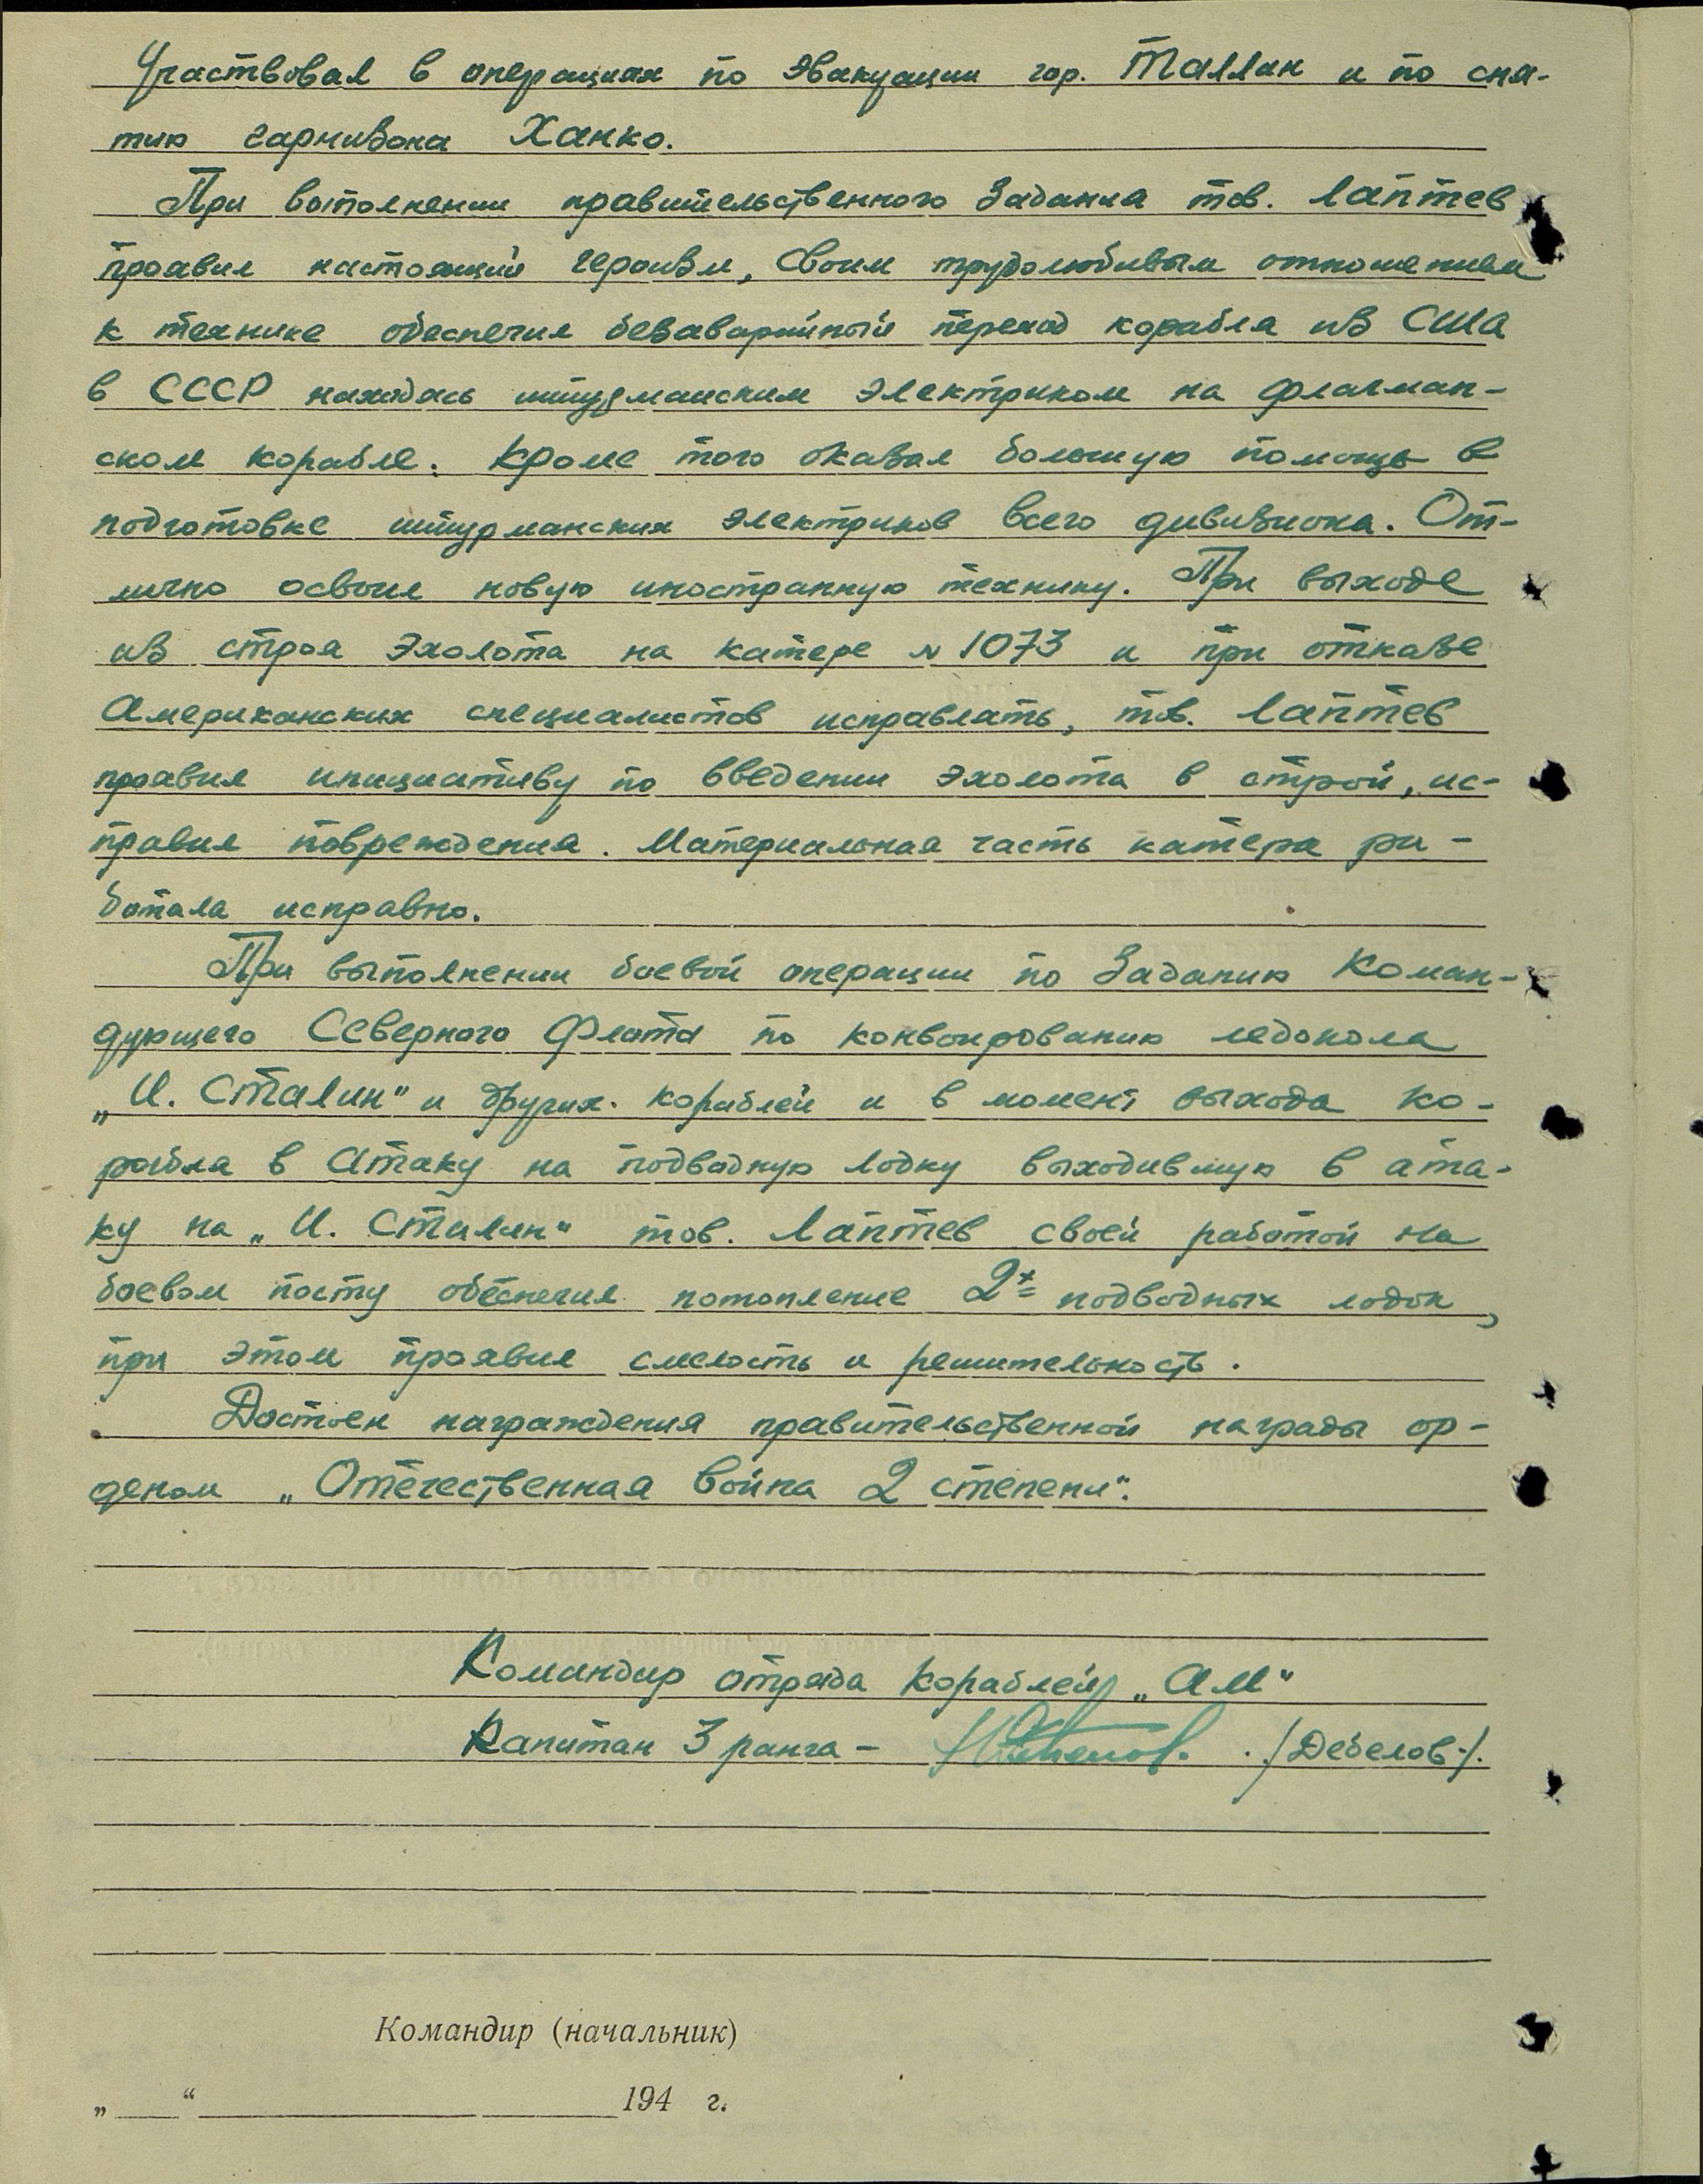 Участвовал в операциях по эвакуации гор. Таллин и по сня-
тию гарнизона Ханко.
При выполнении правительственного задания тов. Лаптев
проявил настоящий героизм, своим трудолюбивым отношением
к технике обеспечил безаварийный переход корабля из США
в СССР находясь штурманским электриком на флагман-
ском корабле. Кроме того оказал большую помощь в
подготовке штурманских электриков всего дивизиона. От-
лично освоил новую иностранную технику. При выходе
из строя эхолота на катере № 1073 и при отказе
Американских специалистов исправлять, тов. Лаптев
проявил инициативу по введении эхолота в строй, ис-
правил повреждения. Материальная часть катера ра-
ботала исправно.
При выполнении боевой операции по заданию Коман-
дующего Северного Флота по конвоированию ледокола
„И. Сталин“ и других кораблей и в момент выхода ко-
рабля в атаку на подводную лодку выходившую в ата-
ку на „И. Сталин“ тов. Лаптев своей работой на
боевом посту обеспечил потопление 2х подводных лодок,
при этом проявил смелость и решительность.
Достоен награждения правительственной награды ор-
деном „Отечественная война 2 степени“.
Командир отряда кораблей „АМ“
Капитан 3 ранга – /Дебелов/.
Командир (начальник)
„ “ 194 г.